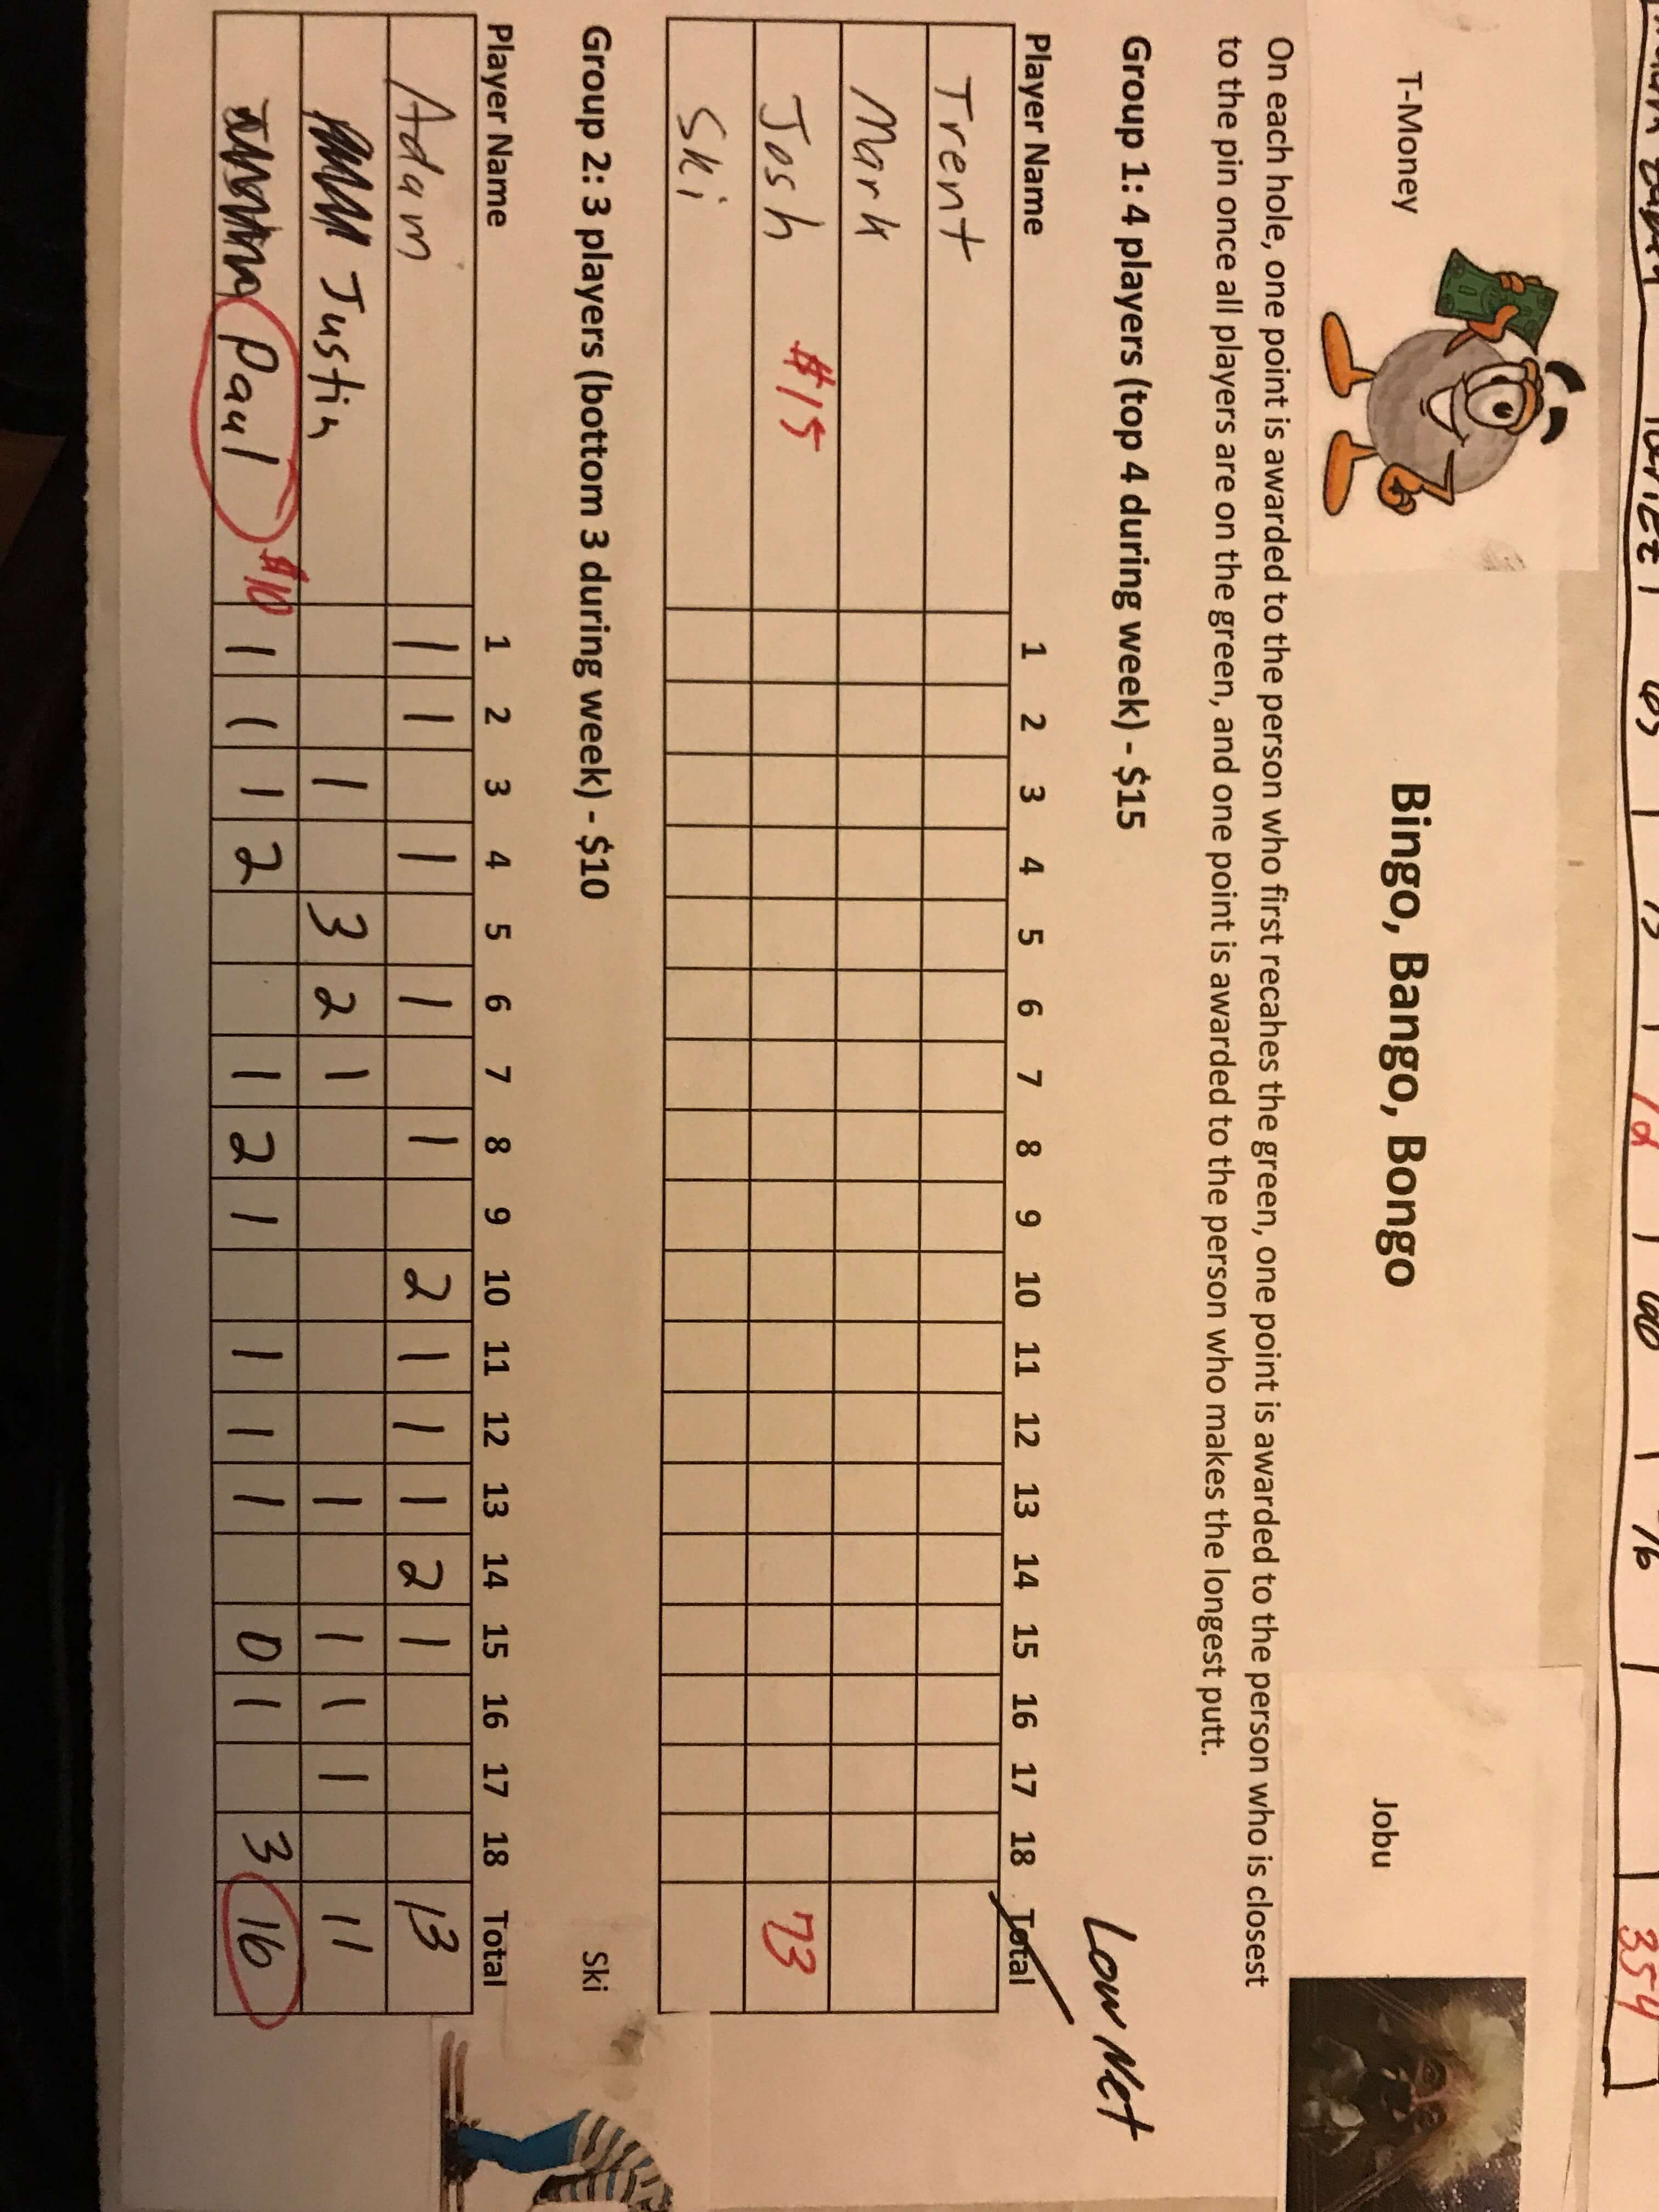 354
T-Money
Bingo, Bango, Bongo
Jobu
On each hole, one point is awarded to the person who first recahes the green, one point is awarded to the person who is closest
to the pin once all players are on the green, and one point is awarded to the person who makes the longest putt.
Low Net
Group 1: 4 players (top 4 during week) - $15
Player Name 1 2 3 4 5 6 7 8 9 10 11 12 13 14 15 16 17 18 Total
Trent
Mark
Josh $15 73
Ski
Group 2: 3 players (bottom 3 during week) - $10 Ski
Player Name 1 2 3 4 5 6 7 8 9 10 11 12 13 14 15 16 17 18 Total
Adam 1 1 1 1 1 2 1 1 1 2 1 13
Justin 1 3 2 1 1 1 1 1 11
Paul $10 1 1 1 2 1 2 1 1 1 1 0 1 3 16